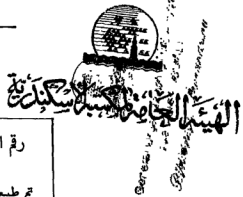 الهيئة العامة لمكتبة الأسكندرية
رقم ا
تم طبع